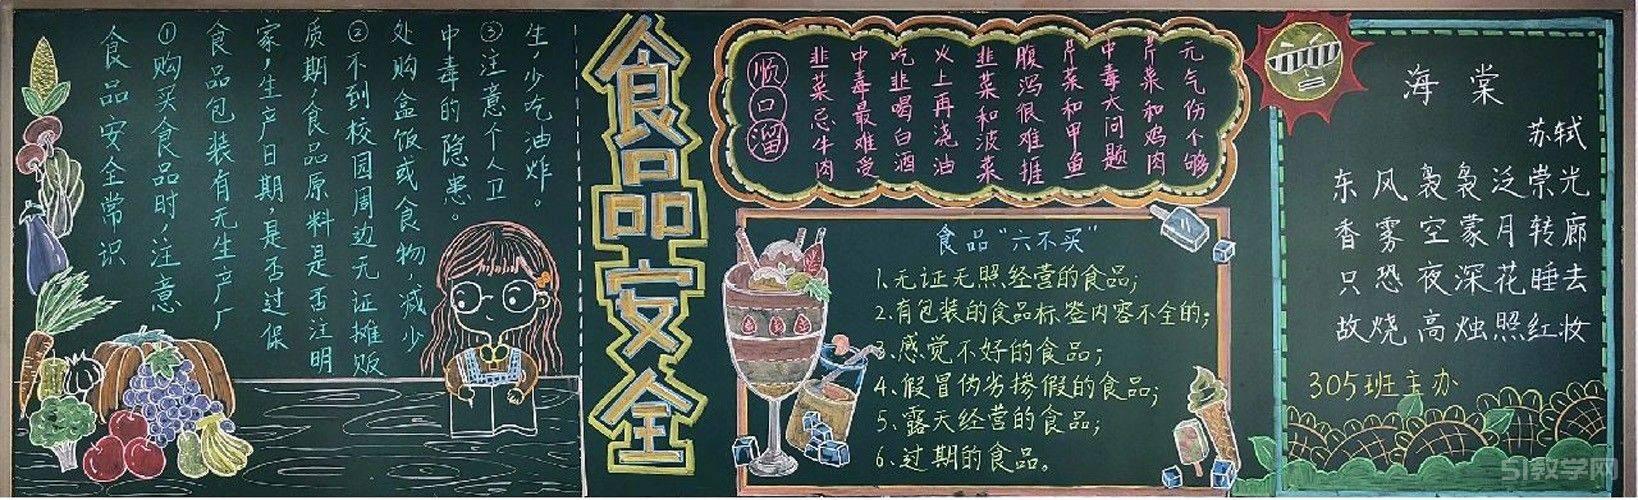 食品安全常识
①购买食品时,注意
食品包装有无生产厂
家,生产日期,是否过保
质期,食品原料是否注明
②不到校园周边无证摊贩
处购盒饭或食物,减少
中毒的隐患。
③注意个人卫
生,少吃油炸。
食品安全
顺口溜
韭菜忌牛肉
中毒最难受
吃韭喝白酒
火上再浇油
韭菜和波菜
腹泻很难捱
芹菜和甲鱼
中毒大问题
芹菜和鸡肉
元气份不够
食品“六不买”
1.无证无照经营的食品;
2.有包装的食品标签内容不全的;
3.感觉不好的食品;
4.假冒伪劣掺假的食品;
5.露天经营的食品;
6.过期的食品。
海棠
苏轼
东风袅袅泛崇光
香雾空蒙月转廊
只恐夜深花睡去
故烧高烛照红妆
305班主办
51教学网